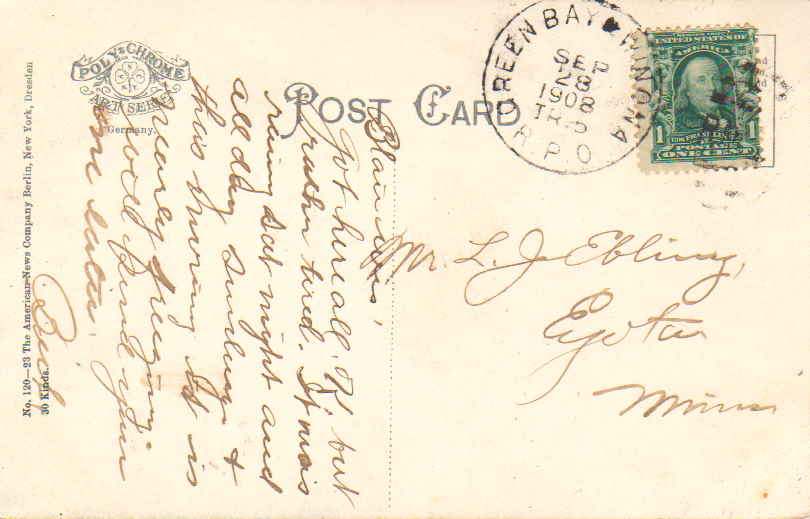 POLY-CHROME
ART SERIES
Germany.
POST CARD
GREEN BAY & WINONA
SEP
28
1908
TR.5
R.P.O.
UNITED STATES OF
AMERICA
1 1
POSTAGE
ONE CENT
Got here all O.K. but
rather tired. It was
raining Sat night and
all day Sunday &
this morning it is
nearly freezing.
Will send you
one later.
Mr. L. J. Ebling,
Eyota
Minn
No. 120—23 The American News Company Berlin, New York, Dresden
30 Kinds.